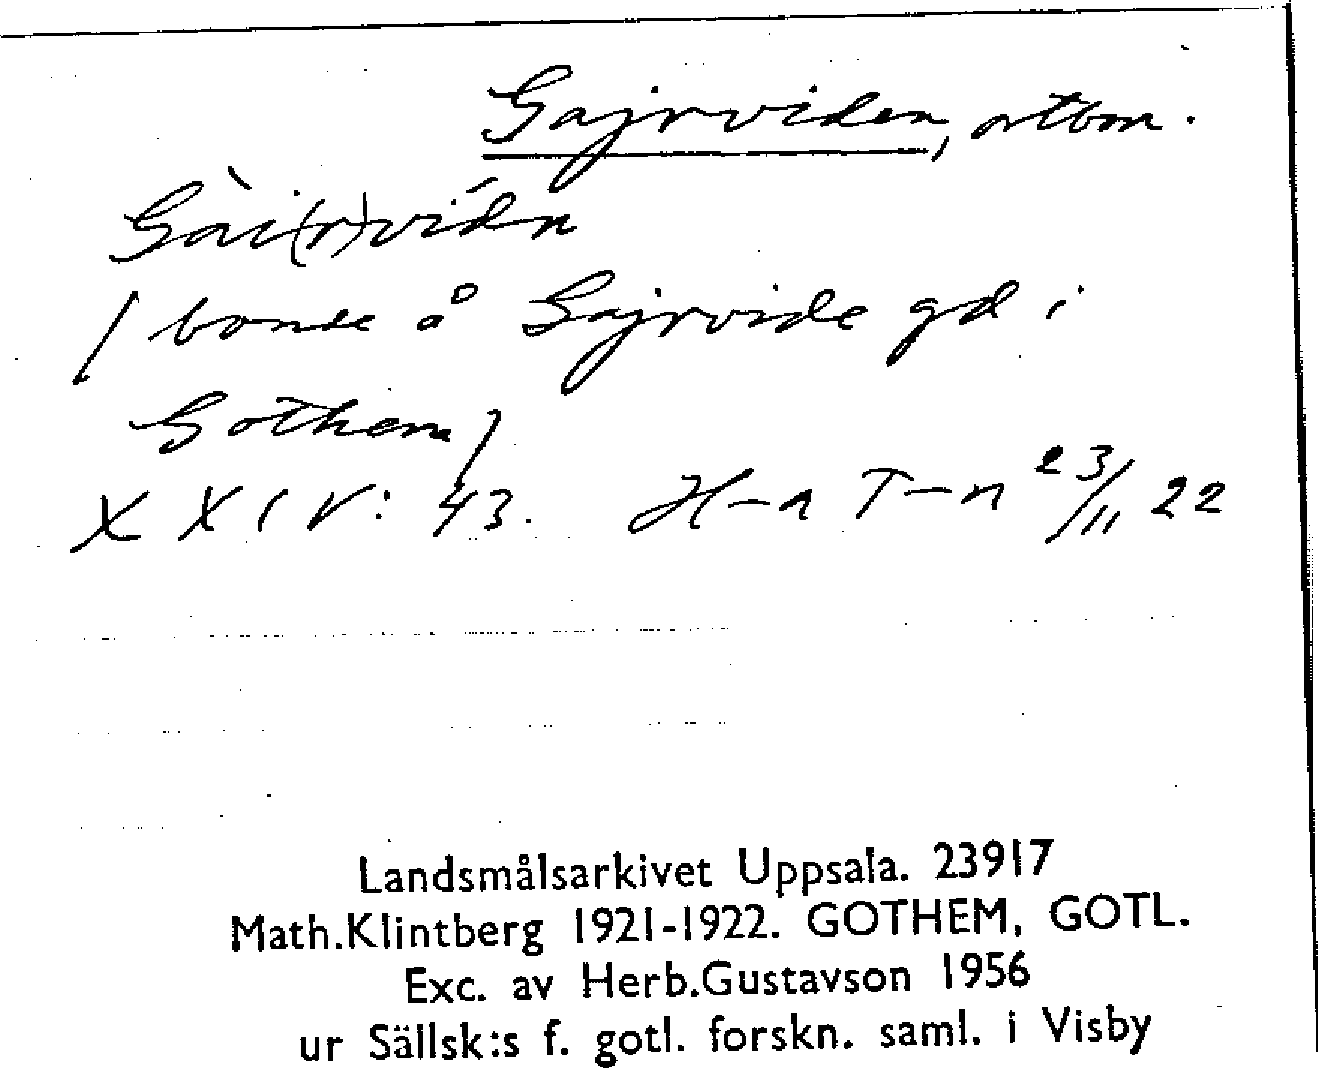 Gajrviden, ortbon.
Gài(r)vídn
/ bonde å Gajrvide gd i
Gothem /
XXIV: 43. H-n T-n 23/11 22
Landsmålsarkivet Uppsala. 23917
Math.Klintberg 1921-1922. GOTHEM, GOTL.
Exc. av Herb.Gustavson 1956
ur Sällsk:s f. gotl. forskn. saml. i Visby